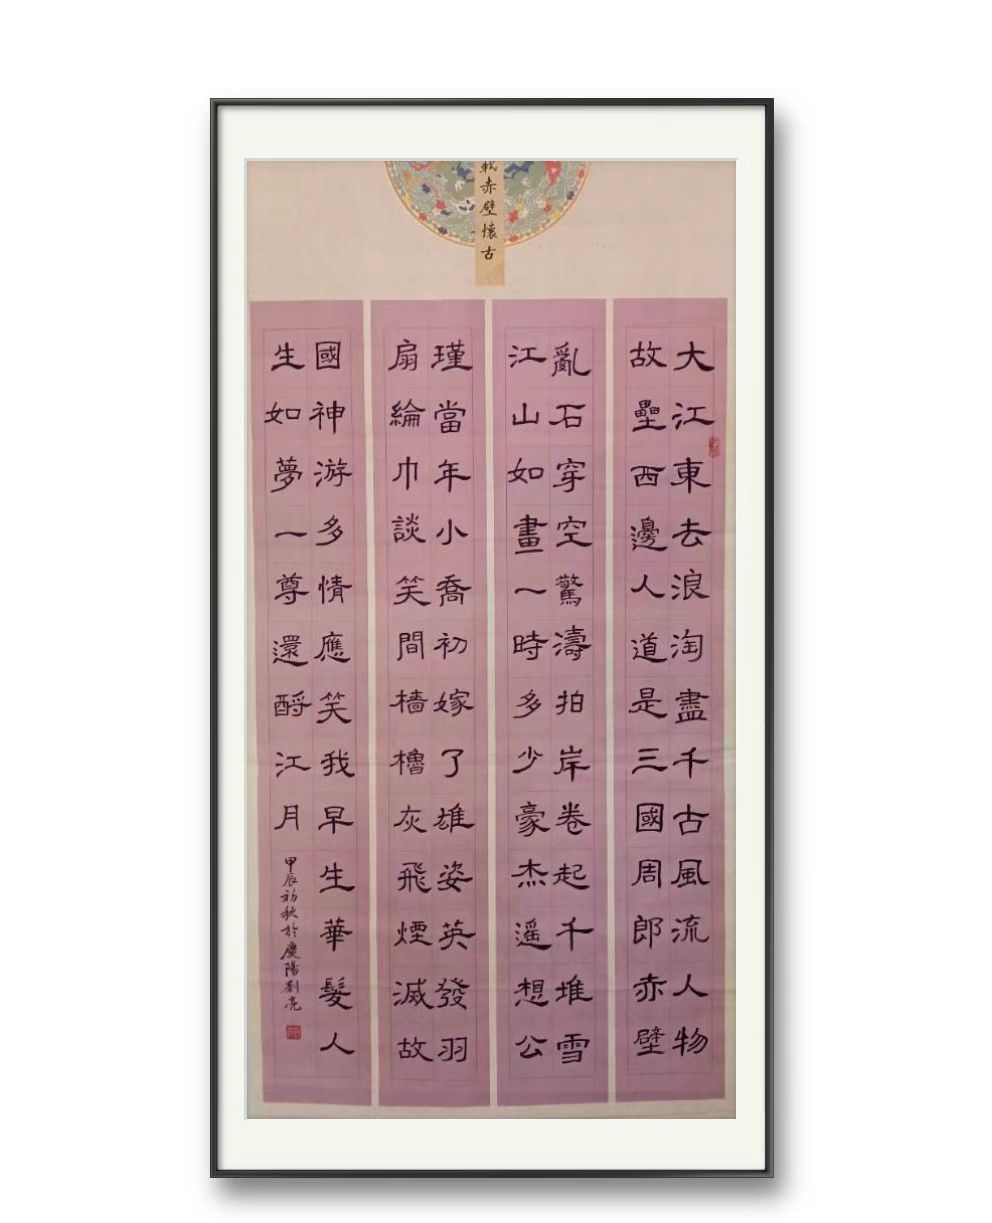 軾赤壁懷古
大江東去浪淘盡千古風流人物
故壘西邊人道是三國周郎赤壁
亂石穿空驚濤拍岸卷起千堆雪
江山如畫一時多少豪杰遥想公
瑾當年小喬初嫁了雄姿英發羽
扇綸巾談笑間檣櫓灰飛煙滅故
國神游多情應笑我早生華髮人
生如夢一尊還酹江月
甲辰初秋於慶陽劉亮